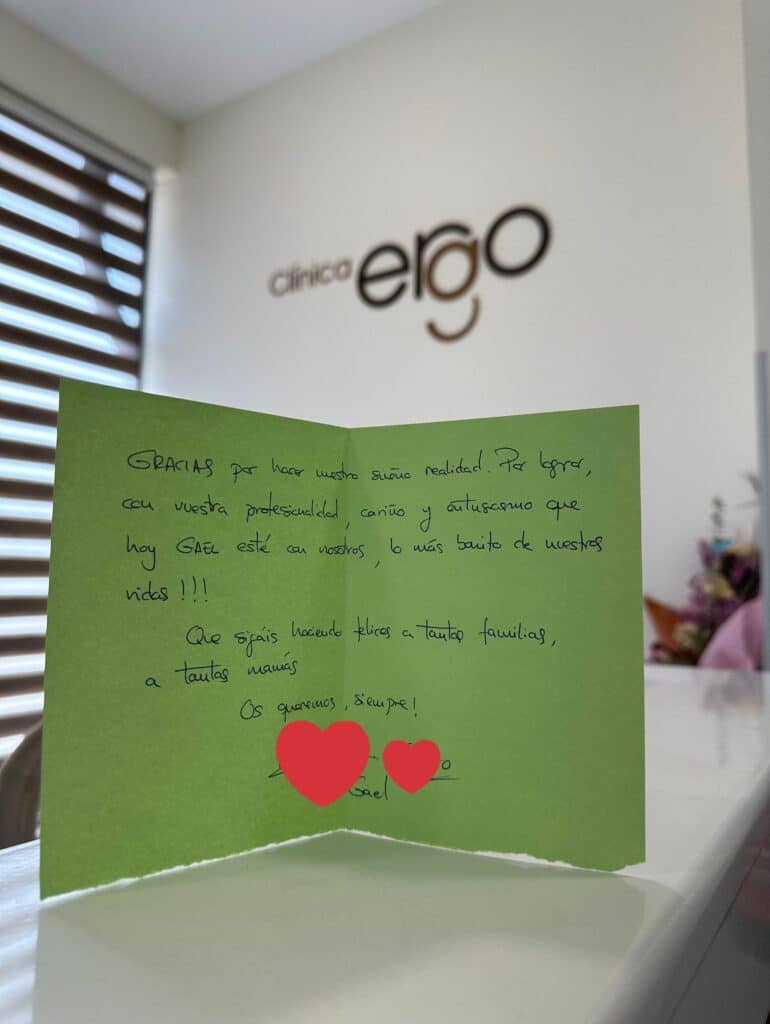 Clínica ergo
GRACIAS por hacer nuestro sueño realidad. Por lograr,
con vuestra profesionalidad, cariño y entusiasmo que
hoy GAEL esté con nosotros, lo más bonito de nuestras
vidas!!!
Que sigáis haciendo felices a tantas familias,
a tantas mamás
Os queremos, siempre!
Gael